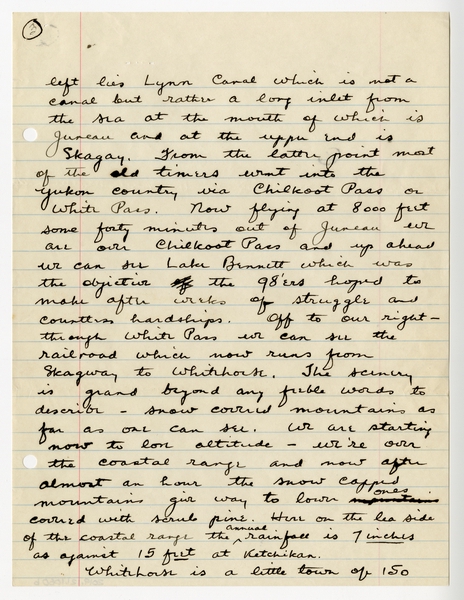 3
left lies Lynn Canal which is not a
canal but rather a long inlet from
the sea at the mouth of which is
Juneau and at the upper end is
Skagay. From the latter point most
of the old timers went into the
Yukon country via Chilkoot Pass or
White Pass. Now flying at 8000 feet
some forty minutes out of Juneau we
are over Chilkoot Pass and up ahead
we can see Lake Bennett which was
the objective of the 98'ers hoped to
make after weeks of struggle and
countless hardships. Off to our right -
through White Pass we can see the
railroad which now runs from
Skagway to Whitehorse. The scenery
is grand beyond any feeble words to
describe - snow covered mountains as
far as one can see. We are starting
now to lose altitude - we're over
the coastal range and now after
almost an hour the snow capped
mountains give way to lower ones
covered with scrub pine. Here on the lee side
of the coastal range the annual rainfall is 7 inches
as against 15 feet at Ketchikan.
Whitehorse is a little town of 150